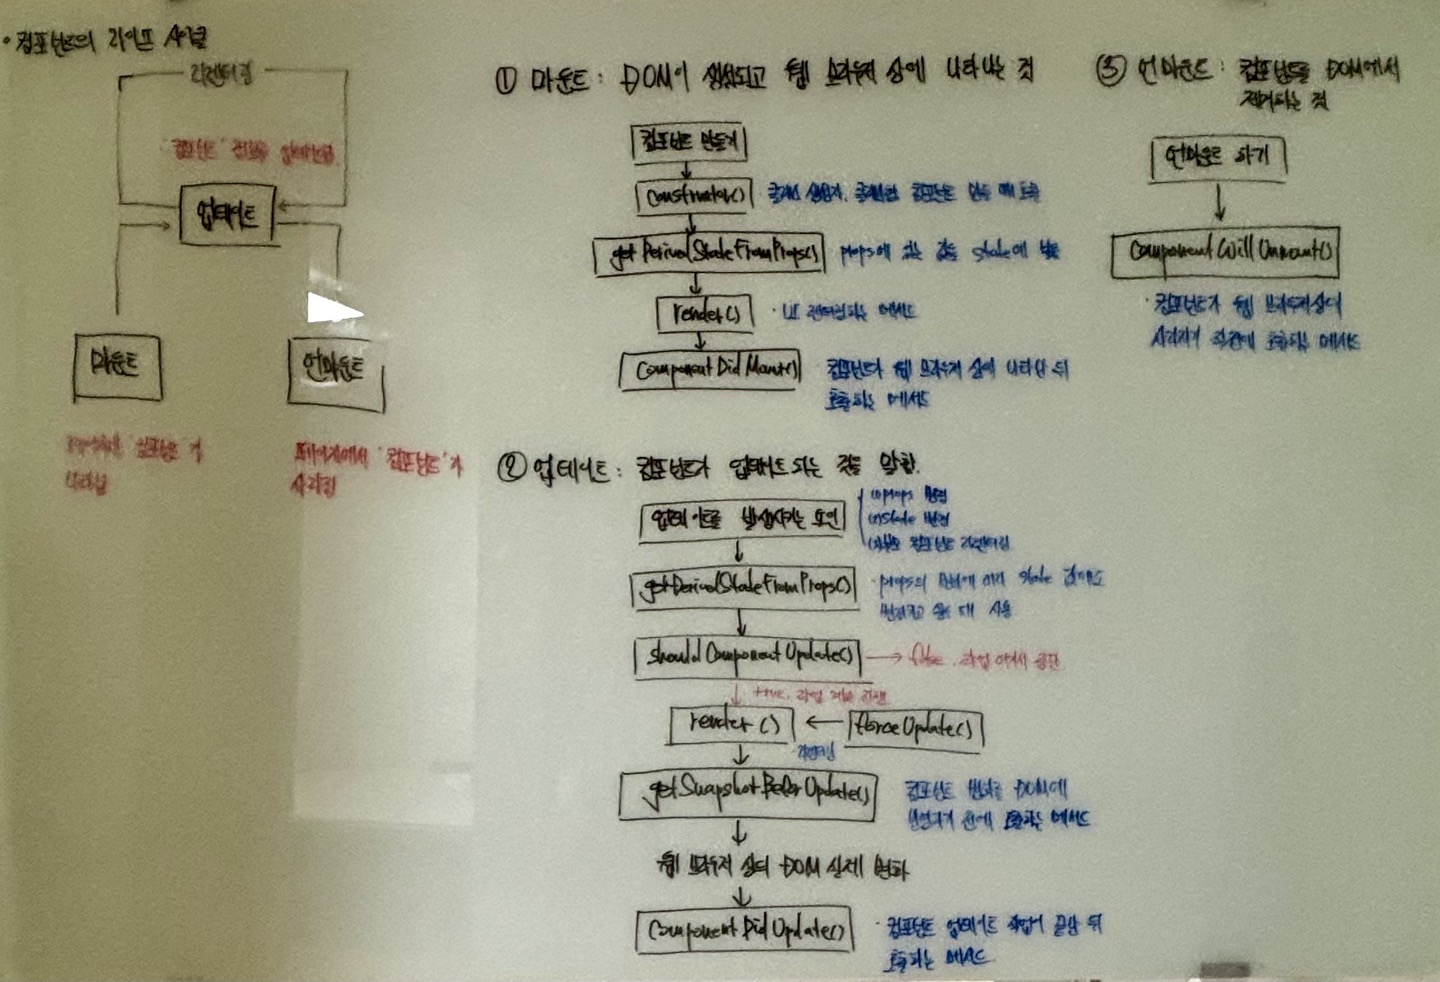 · 컴포넌트의 라이프 사이클
리렌더링
"컴포넌트" 정보를 업데이트함
업데이트
마운트
언마운트
페이지에 "컴포넌트"가
나타남
페이지에서 "컴포넌트"가
사라짐
① 마운트 : DOM이 생성되고 웹 브라우저 상에 나타나는 것
컴포넌트 만들기
constructor()
클래스 생성자. 클래스형 컴포넌트 만들 때 호출
getDerivedStateFromProps()
props에 있는 값을 state에 넣음
render()
· UI 렌더링하는 메서드
ComponentDidMount()
컴포넌트가 웹 브라우저 상에 나타난 뒤
호출되는 메서드
② 업데이트 : 컴포넌트가 업데이트 되는 것을 말함.
업데이트를 발생시키는 요인
(1) props 변경
(2) state 변경
(3) 부모 컴포넌트 리렌더링
getDerivedStateFromProps()
· props의 변화에 따라 state 값에도
변화주고 싶을 때 사용
shouldComponentUpdate()
→ false, 작업 여기서 중단
true, 작업 계속 진행
render()
← forceUpdate()
리렌더링
getSnapshotBeforUpdate()
컴포넌트 변화를 DOM에
반영하기 전에 호출하는 메서드
웹 브라우저 상의 DOM 실제 변화
ComponentDidUpdate()
· 컴포넌트 업데이트 작업이 끝난 뒤
호출되는 메서드
③ 언마운트 : 컴포넌트를 DOM에서
제거하는 것
언마운트 하기
ComponentWillUnmount()
· 컴포넌트가 웹 브라우저상에
사라지기 직전에 호출되는 메서드